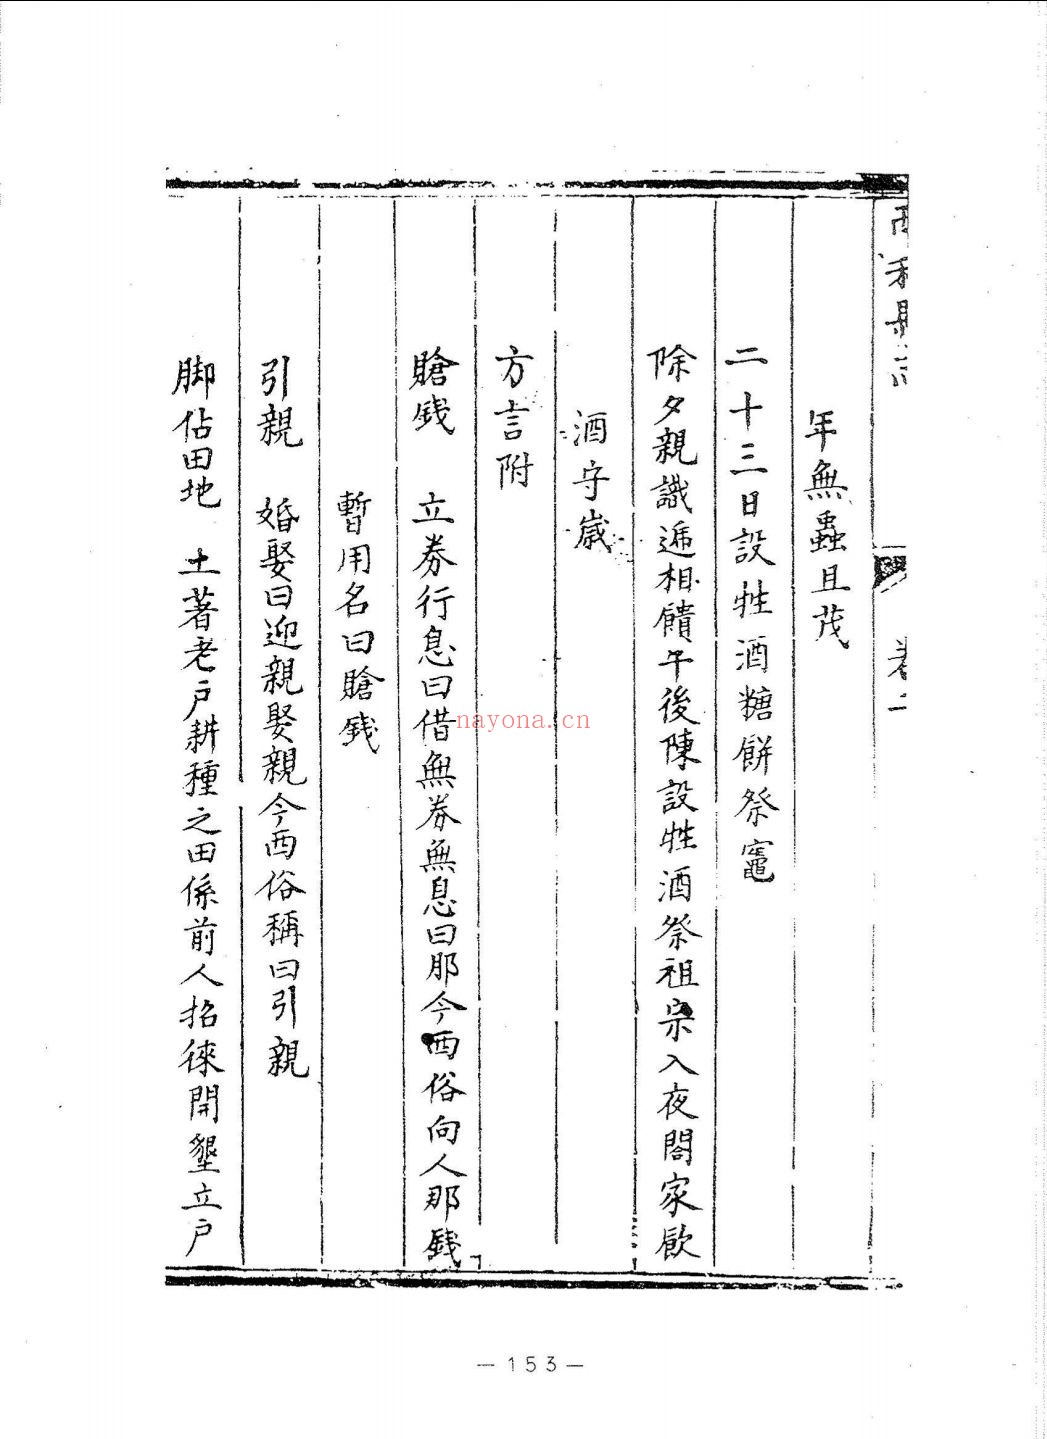 西和縣志 卷二
年無蟲且茂
二十三日設牲酒糖餅祭竈
除夕親識遞相饋午後陳設牲酒祭祖宗入夜閤家飲
酒守歲
方言附
賶錢 立券行息曰借無券無息曰那今西俗向人那錢
暫用名曰賶錢
引親 婚娶曰迎親娶親今西俗稱曰引親
脚佔田地 土著老户耕種之田係前人招徠開墾立户
nayona.cn
— 153 —